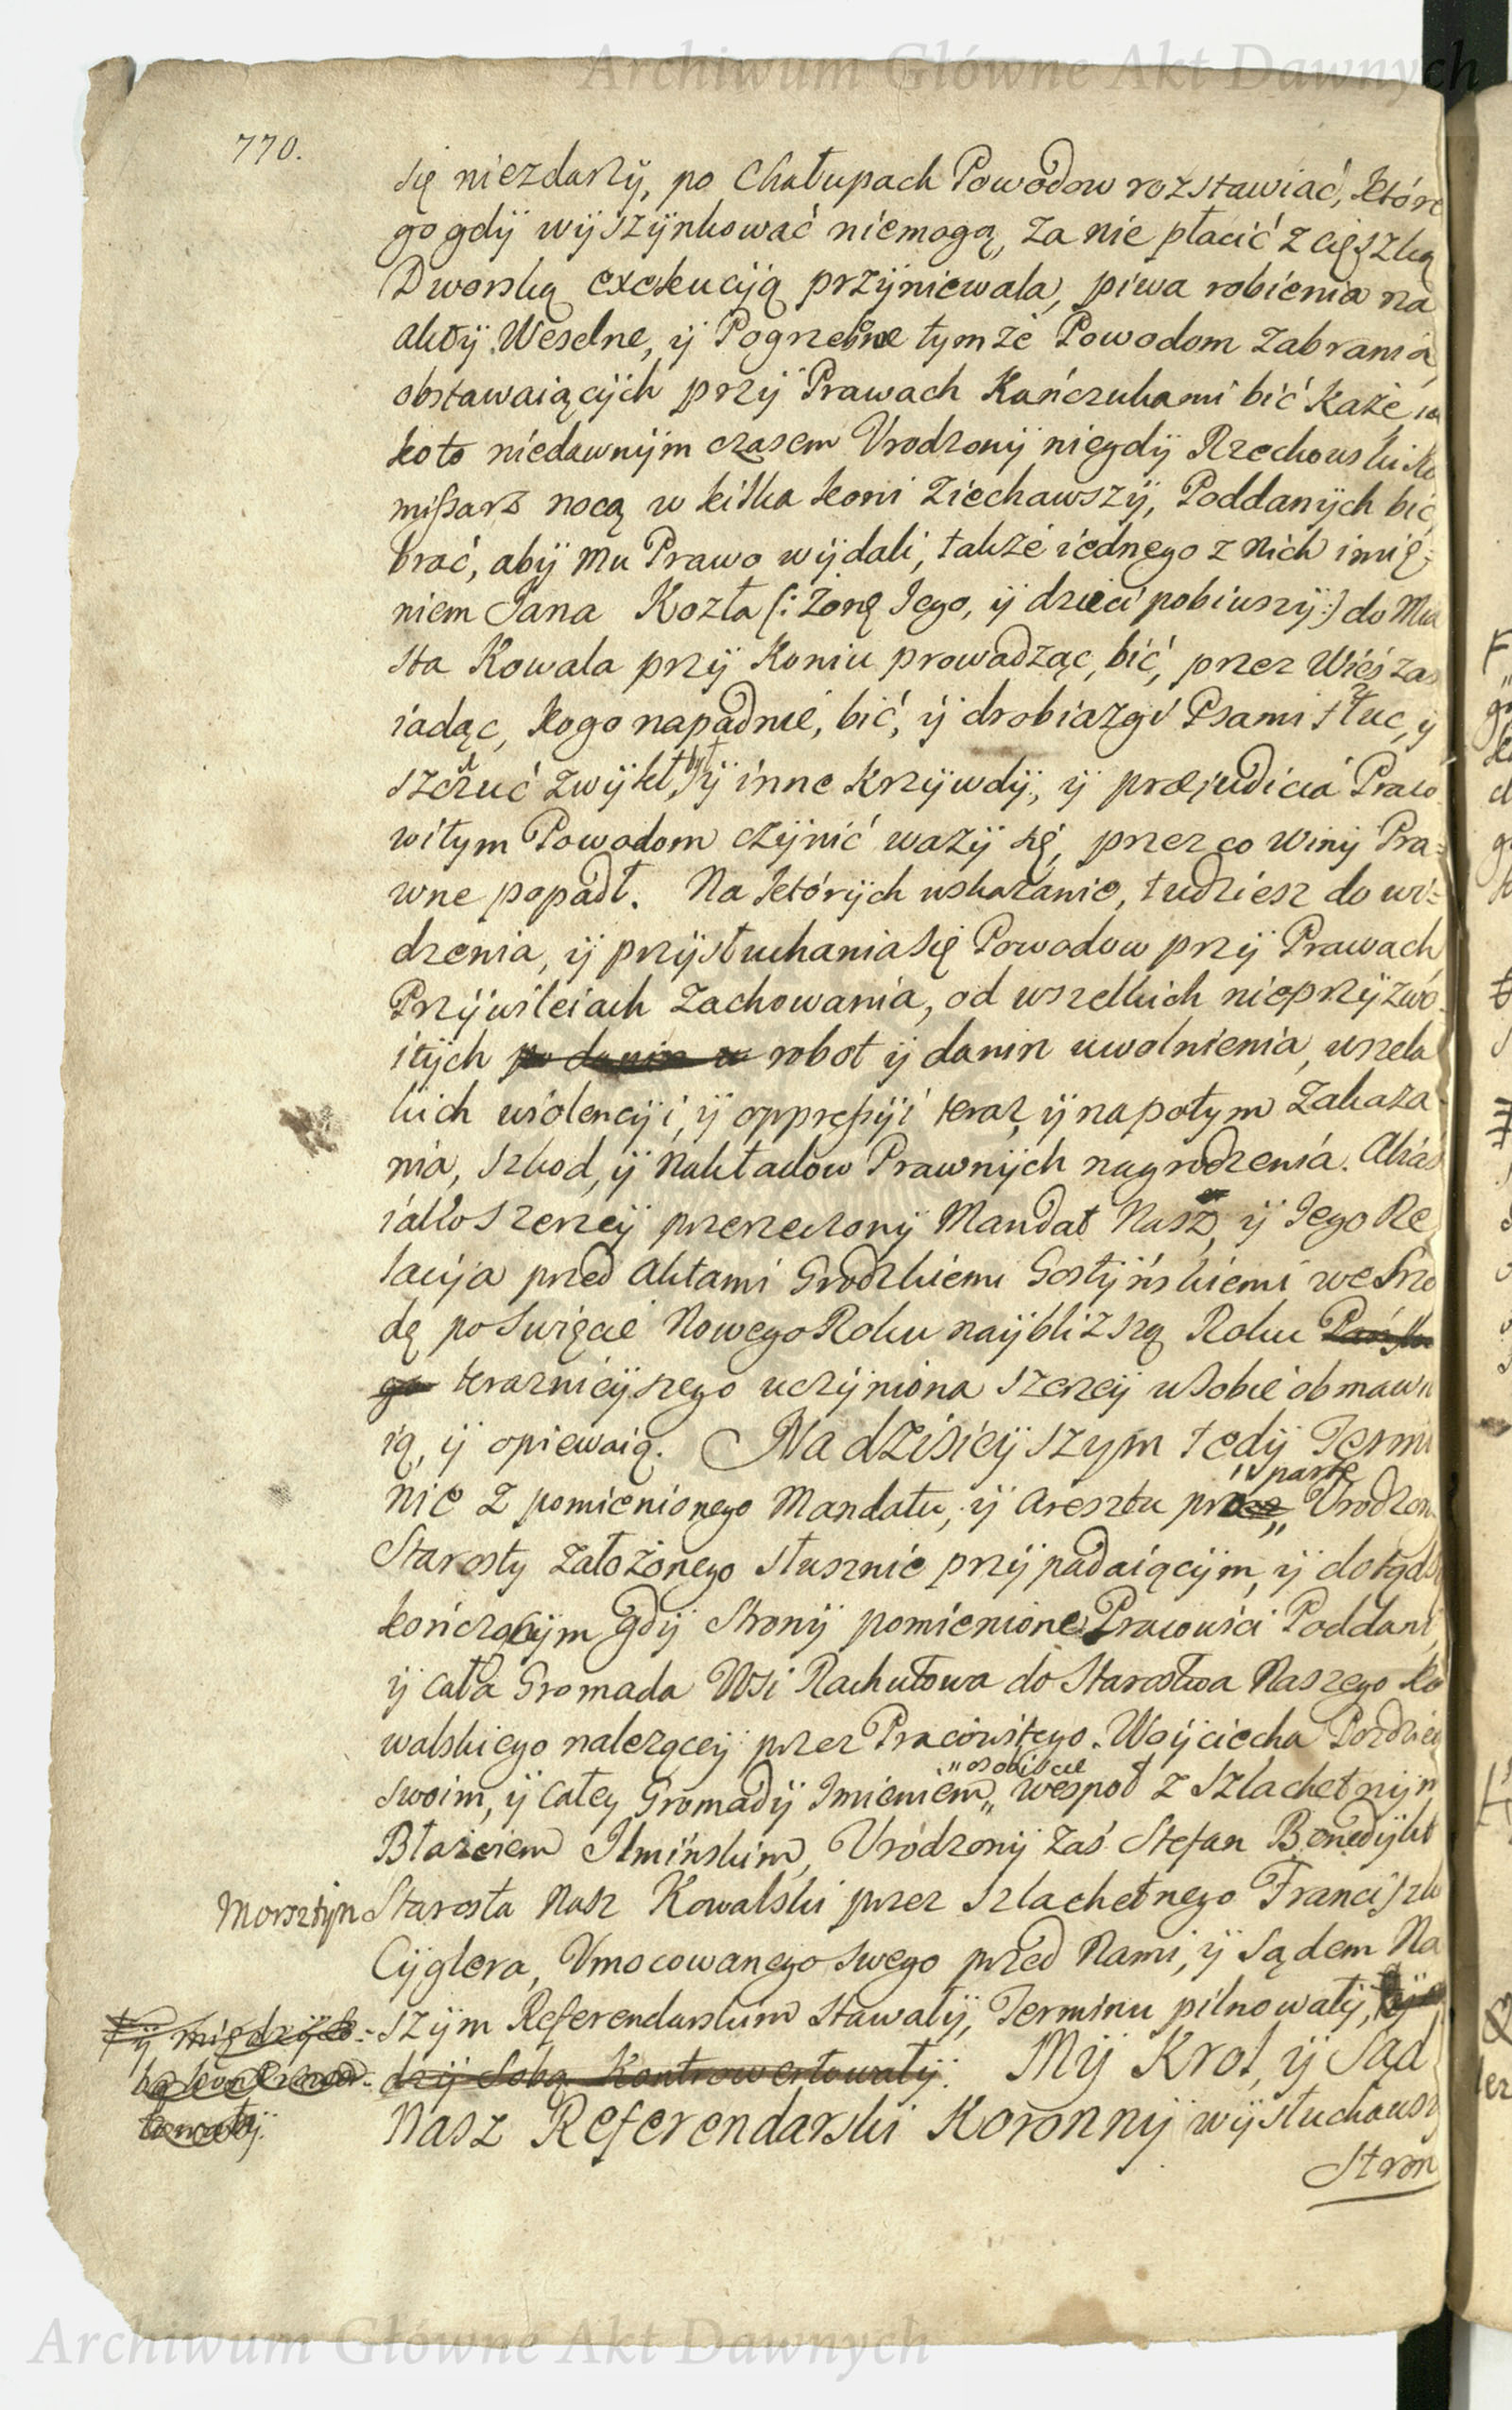 Archiwum Główne Akt Dawnych
770.
się niezdarzÿ, po Chałupach Powodow rozstawiać, które
go gdÿ wÿszÿnkować niemogą, za nie płacić z cięszką
Dworską exekucÿią przÿniewala, piwa robienia na
aktÿ Weselne, ÿ Pogrzebne tymże Powodom zabrania,
obstawaiącÿch przÿ Prawach Kańczukami bić każe, ia
koto niedawnÿm czasem Vrodzonÿ niegdÿ Rzechowski Ko
missarz nocą w kilka koni ziechawszÿ, Poddanÿch bić,
brać, abÿ mu Prawo wÿdali, także iednego z nich imię-
niem Jana Kozła (: Żonę Jego, ÿ dzieci pobiwszÿ :) do Mia
sta Kowala przÿ Koniu prowadząc, bić, przez Wieś zas
iadąc, kogo napadnie, bić, ÿ drobiazgi Psami tłuc, ÿ
szczuć zwÿkł bÿł, ÿ inne krzÿwdÿ, ÿ præjudicia Praco
witym Powodom czÿnić ważÿ się, przez co winÿ Pra-
wne popadł. Na którÿch wskazanie, tudziesz do wi-
dzenia, ÿ przÿsłuchania się Powodow przÿ Prawach
Przÿwileiach zachowania, od wszelkich nieprzÿzwo
itÿch po danin w robot ÿ danin uwolnienia, wszela
kich wiolencÿi, ÿ oppressÿi teraz, ÿ napotym zakaza
nia, szkod, ÿ nakładow Prawnÿch nagrodzenia. Alias
iako szerzeÿ przerzeczonÿ Mandat Nasz, ÿ Jego Re
lacÿa przed Aktami Grodzkiemi Gostÿńskiemi we Srzo
dę po Swięcie Nowego Roku naÿbliższą Roku Pańskie
go teraznieÿszego uczÿniona szerzeÿ w sobie obmawia
ią, ÿ opiewaią. Na dzisieÿszym tedÿ Termi
nie z pomienionego Mandatu, ÿ Aresztu przez „ parte Vrodzon
Starosty założonego słusznie przÿpadaiącÿm, ÿ dotąds
kończącÿm gdÿ Stronÿ pomienione Pracowici Poddani,
ÿ cała Gromada Wsi Rachutowa do Starostwa Naszego Ko
walskiego należąceÿ przez Pracowitego Woÿciecha Pozdzie
swoim, ÿ całeÿ Gromadÿ Imieniem „ osobiscie wespoł z Szlachetnÿm
Błażeiem Ilmińskim, Vrodzonÿ zaś Stefan Benedÿkt
Morsztÿn Starosta Nasz Kowalski przez Szlachetnego Franciszka
Cÿglera, Vmocowanego swego przed Nami, ÿ Sądem Na
szÿm Referendarskim stawałÿ, Terminu pilnowałÿ,
tÿ międzÿ so-
dzÿ Sobą Kontrowertowałÿ. Mÿ Krol, ÿ Sąd
Nasz Referendarski Koronnÿ wÿsłuchawszÿ
Stron
Archiwum Główne Akt Dawnych